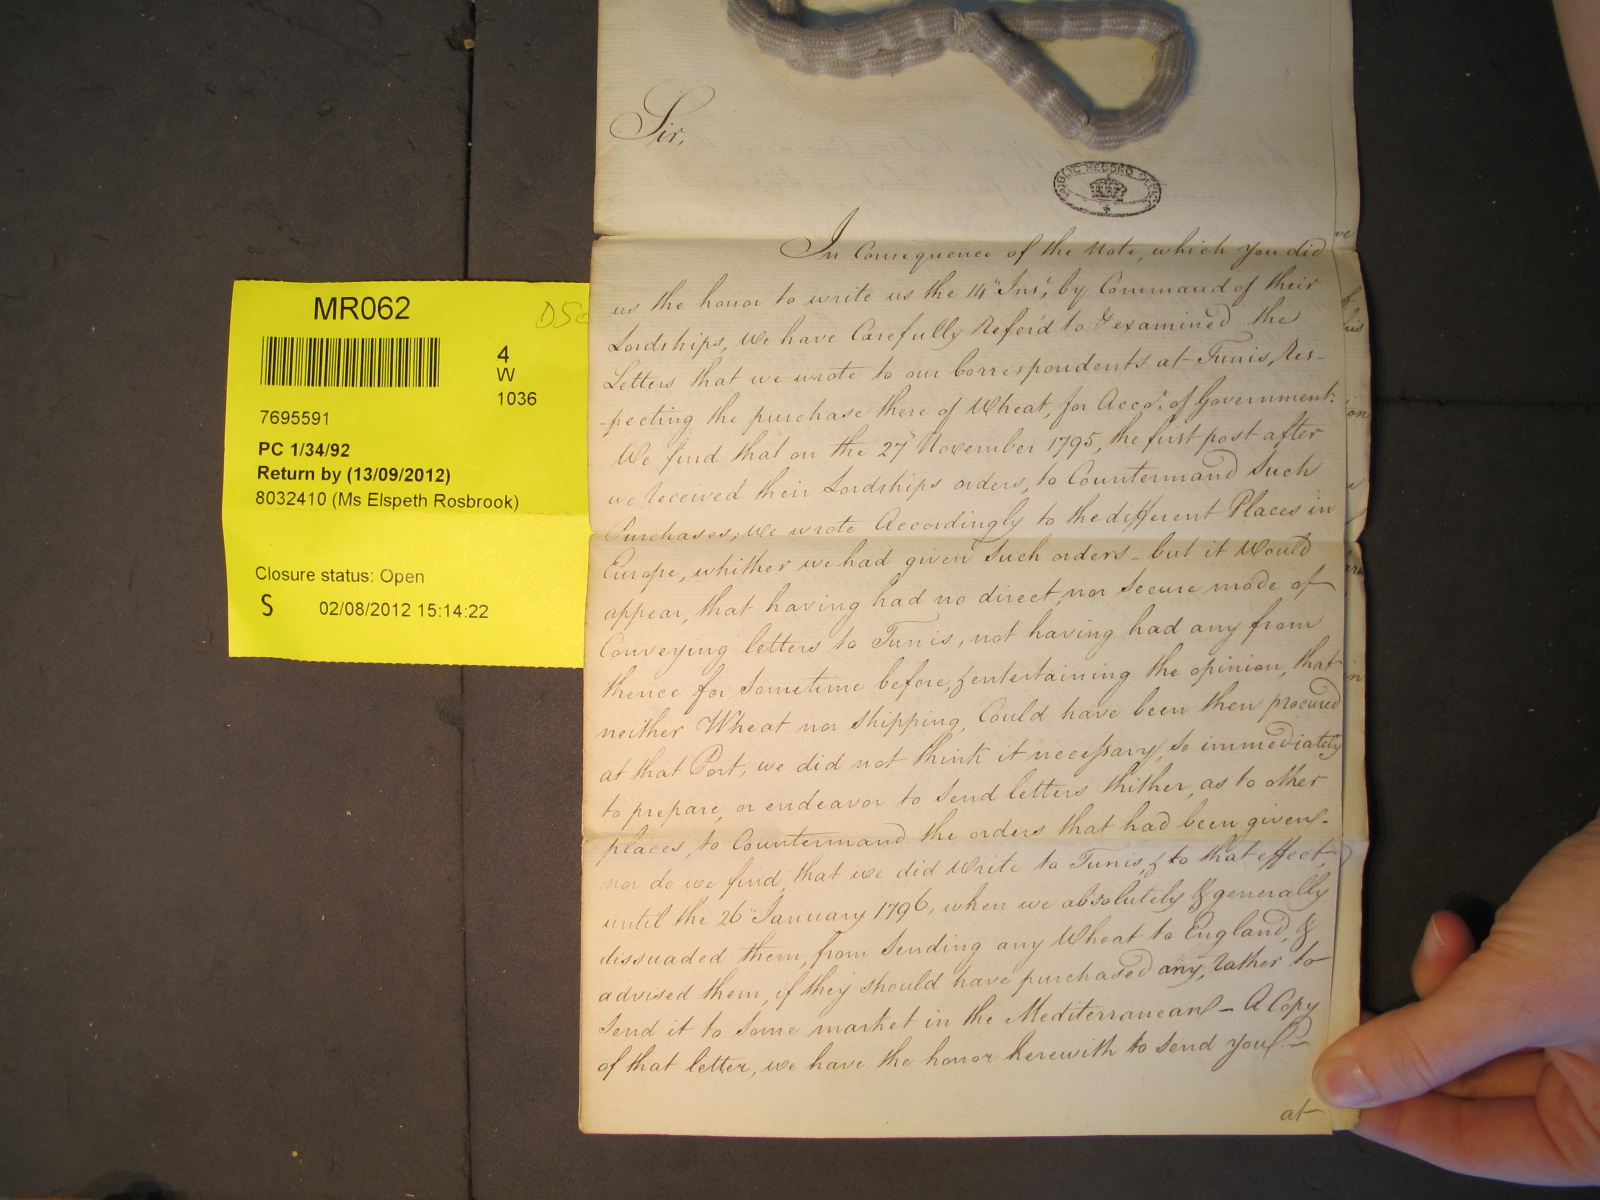 MR062
4
W
1036
7695591
PC 1/34/92
Return by (13/09/2012)
8032410 (Ms Elspeth Rosbrook)
Closure status: Open
S 02/08/2012 15:14:22
Sir,
PUBLIC RECORD OFFICE
In Consequence of the Note, which you did
us the honor to write us the 14" Inst, by Command of their
Lordships, we have Carefully Referd to & examined the
Letters that we wrote to our Correspondents at Tunis, Res-
-pecting the purchase there of Wheat, for Acco.t of Government:
We find that on the 27" November 1795, the first post after
we received their Lordships orders, to Countermand Such
Purchases; we wrote Accordingly to the different Places in
Europe, whither we had given Such orders - but it Would
appear, that having had no direct, nor Secure mode of
Conveying letters to Tunis, not having had any from
thence for Sometime before, & entertaining the opinion, that
neither Wheat nor Shipping, Could have been then procured
at that Port, we did not think it necessary, so immediately
to prepare, or endeavor to Send letters thither, as to other
places, to Countermand the orders that had been given -
nor do we find, that we did Write to Tunis, & to that effect,
until the 26" January 1796, when we absolutely & generally
dissuaded them, from Sending any Wheat to England, &
advised them, if they should have purchased any, rather to
Send it to Some market in the Mediterranean - A Copy
of that letter, we have the honor herewith to Send you. -
at